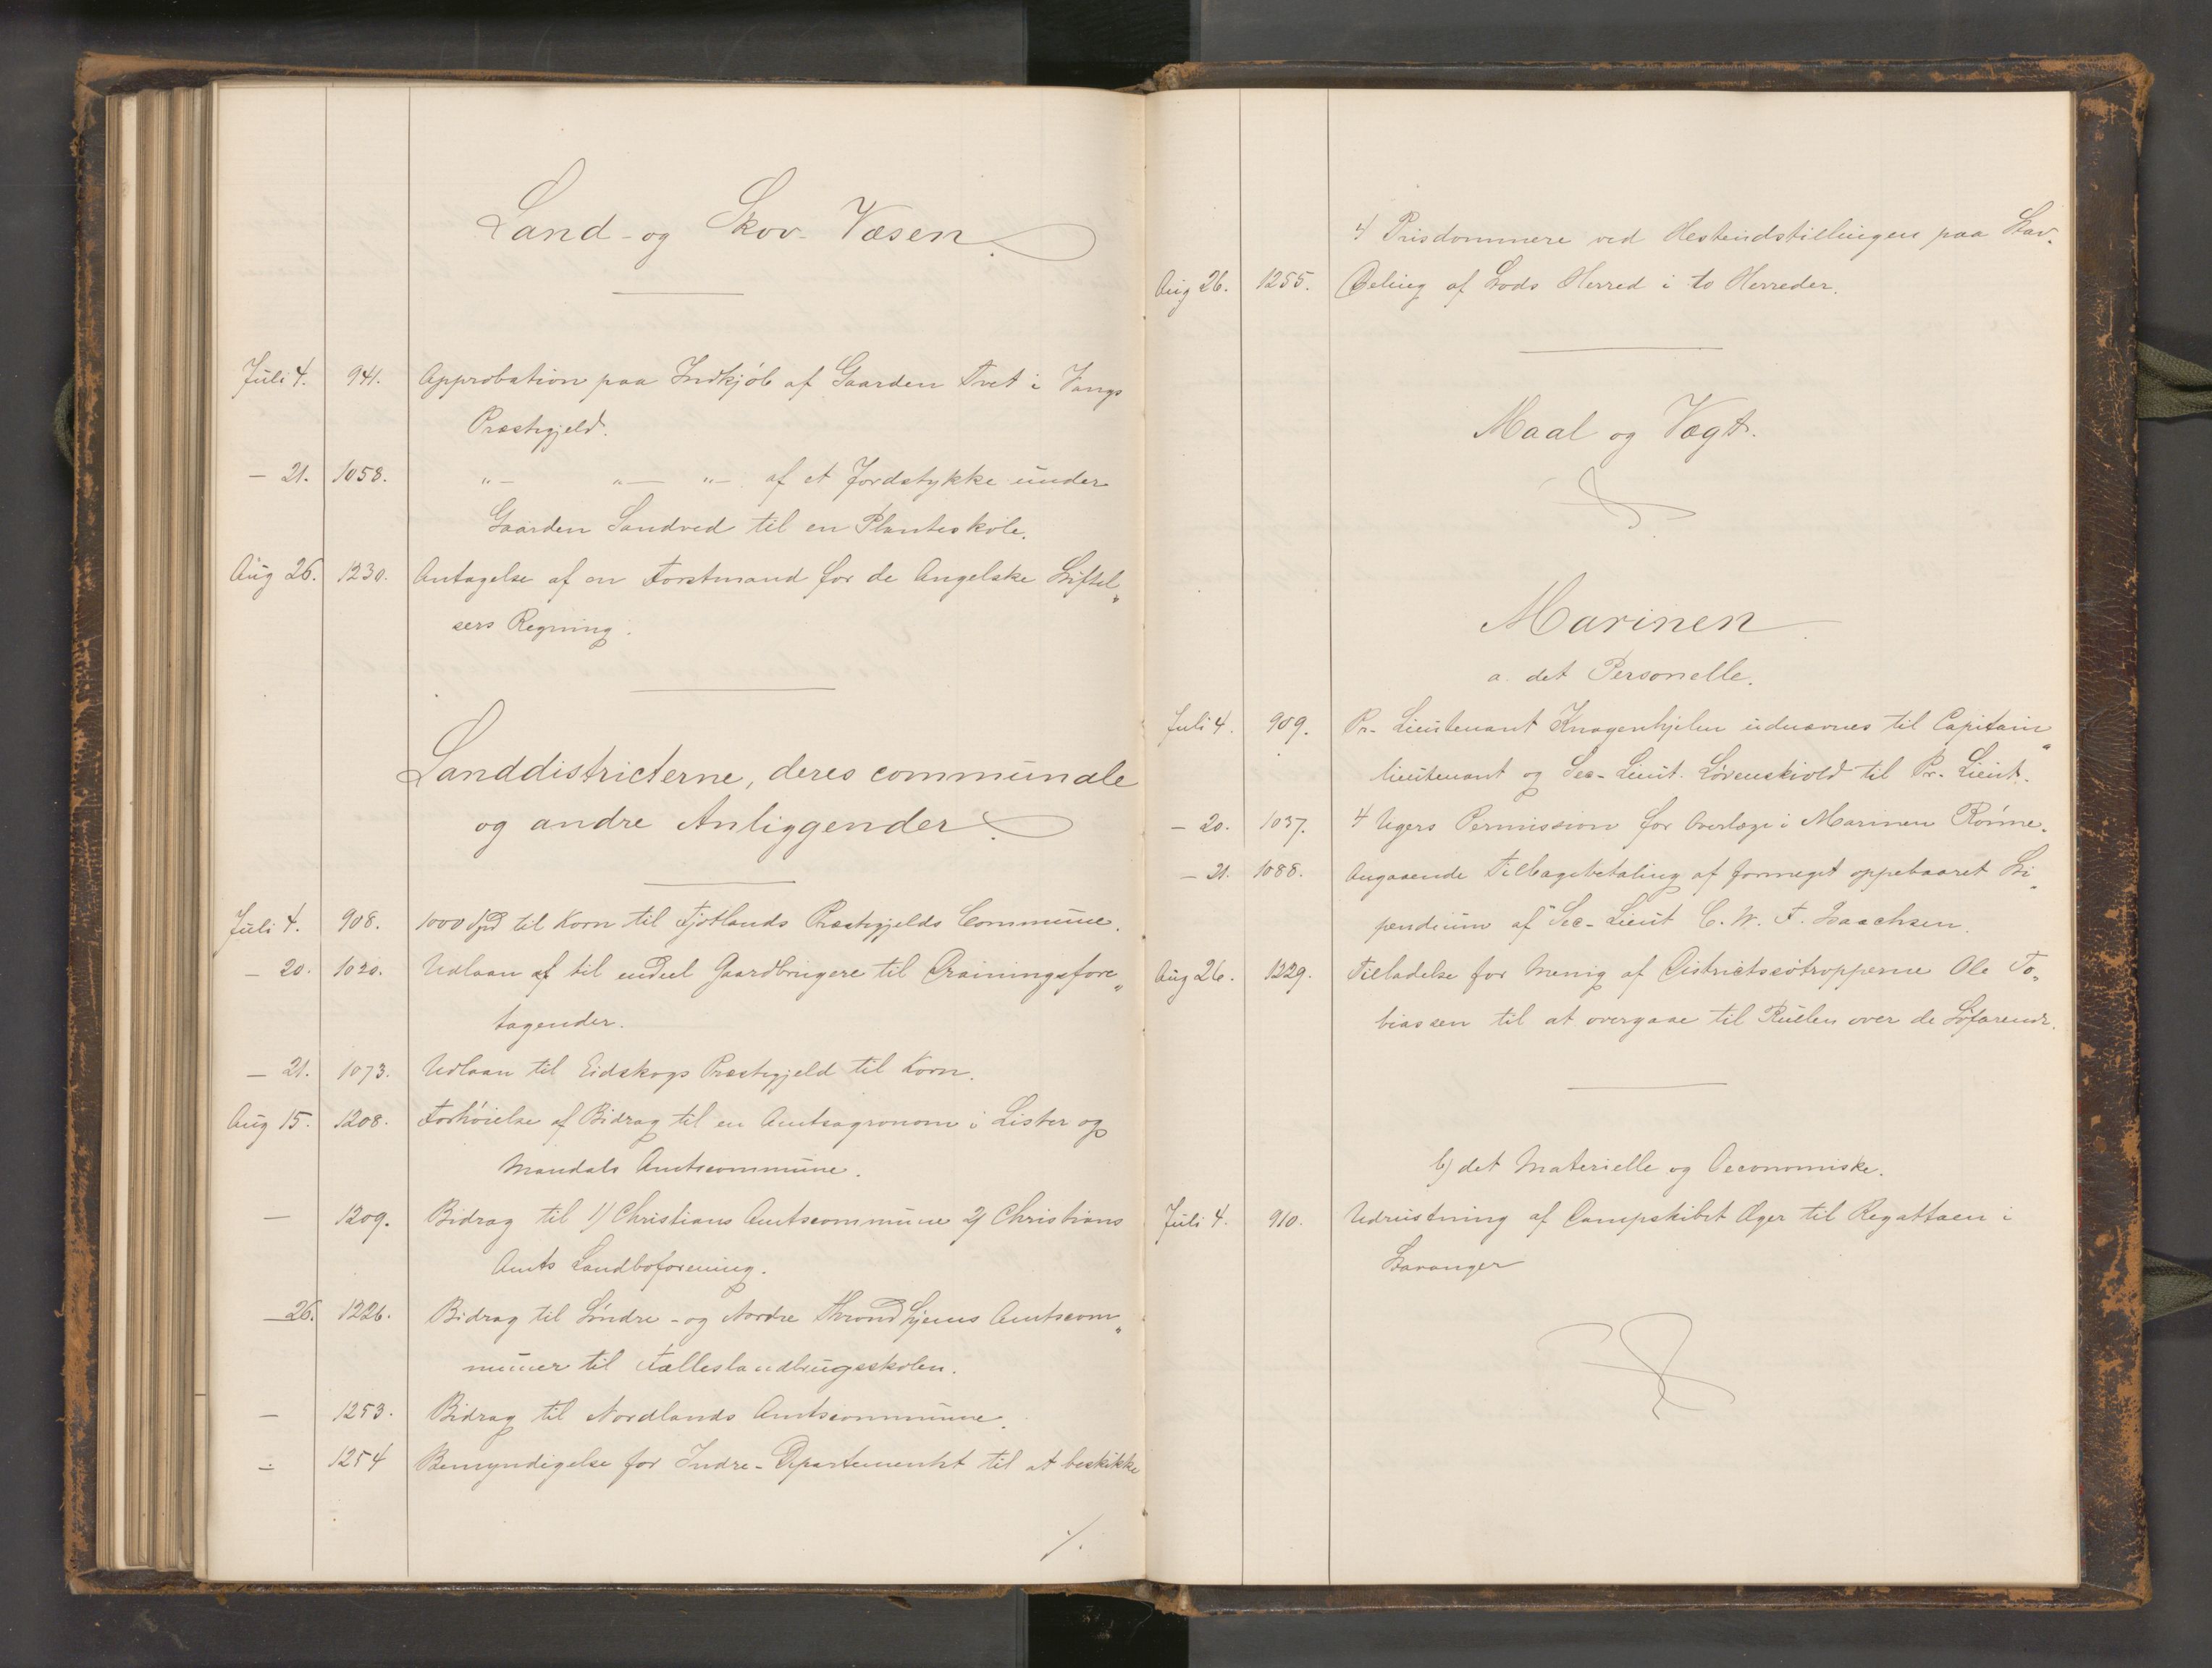 Land- og Skov-Væsen.
Juli 4. 941. Approbation paa Indkjöb af Gaarden Tvet i Vangs
Præstegjeld.
— 21. 1058. "— "— "— af et Jordstykke under
Gaarden Sandved til en Planteskole.
Aug 26. 1230. Antagelse af en Forstmand for de Angelske Stiftel„
sers Regning.
Landdistricterne, deres communale
og andre Anliggender.
Juli 4. 908. 1000 Spd til Korn til Fjotlands Præstegjelds Commune.
— 20. 1020. Udlaan af til endeel Gaardbrugere til Draining­sfore„
tagender.
— 21. 1073. Udlaan til Eidskogs Præstegjeld til Korn.
Aug 15. 1208. Forhöielse af Bidrag til en Amtsagronom i Lister og
Mandals Amtscommune.
— 1209. Bidrag til 1) Christians Amtscommune 2) Christians
Amts Landboforening.
— 26. 1226. Bidrag til Söndre- og Nordre Throndhjems Amtscom„
muner til Fælleslandbrugsskolen.
— 1253. Bidrag til Nordlands Amtscommune.
— 1254 Bemyndigelse for Indre-Departementet til at beskikke
./.
4 Prisdommere ved Hesteudstillingen paa Stav.
Aug 26. 1255. Deling af Sods Herred i to Herreder.
Maal og Vægt.
Marinen.
a. det Personelle.
Juli 4. 909. Pr. Lieutenant Knagenhjelm udnævnes til Capitain„
lieutenant og Sec-Lieut. Lövenskiold til Pr. Lieut.
— 20. 1037. 4 Ugers Permission for Overlæge i Marinen Rönne.
— 21. 1088. Angaaende Tilbagebetaling af formeget oppebaaret Sti„
pendium af Sec-Lieut C. W. F. Isaachsen.
Aug 26. 1229. Tilladelse for Menig af Districtssötropperne Ole To„
biassen til at overgaae til Rullen over de Söfarende.
b) det Materielle og Oeconomiske.
Juli 4. 910. Udrustning af Dampskibet Æger til Regattaen i
Stavanger